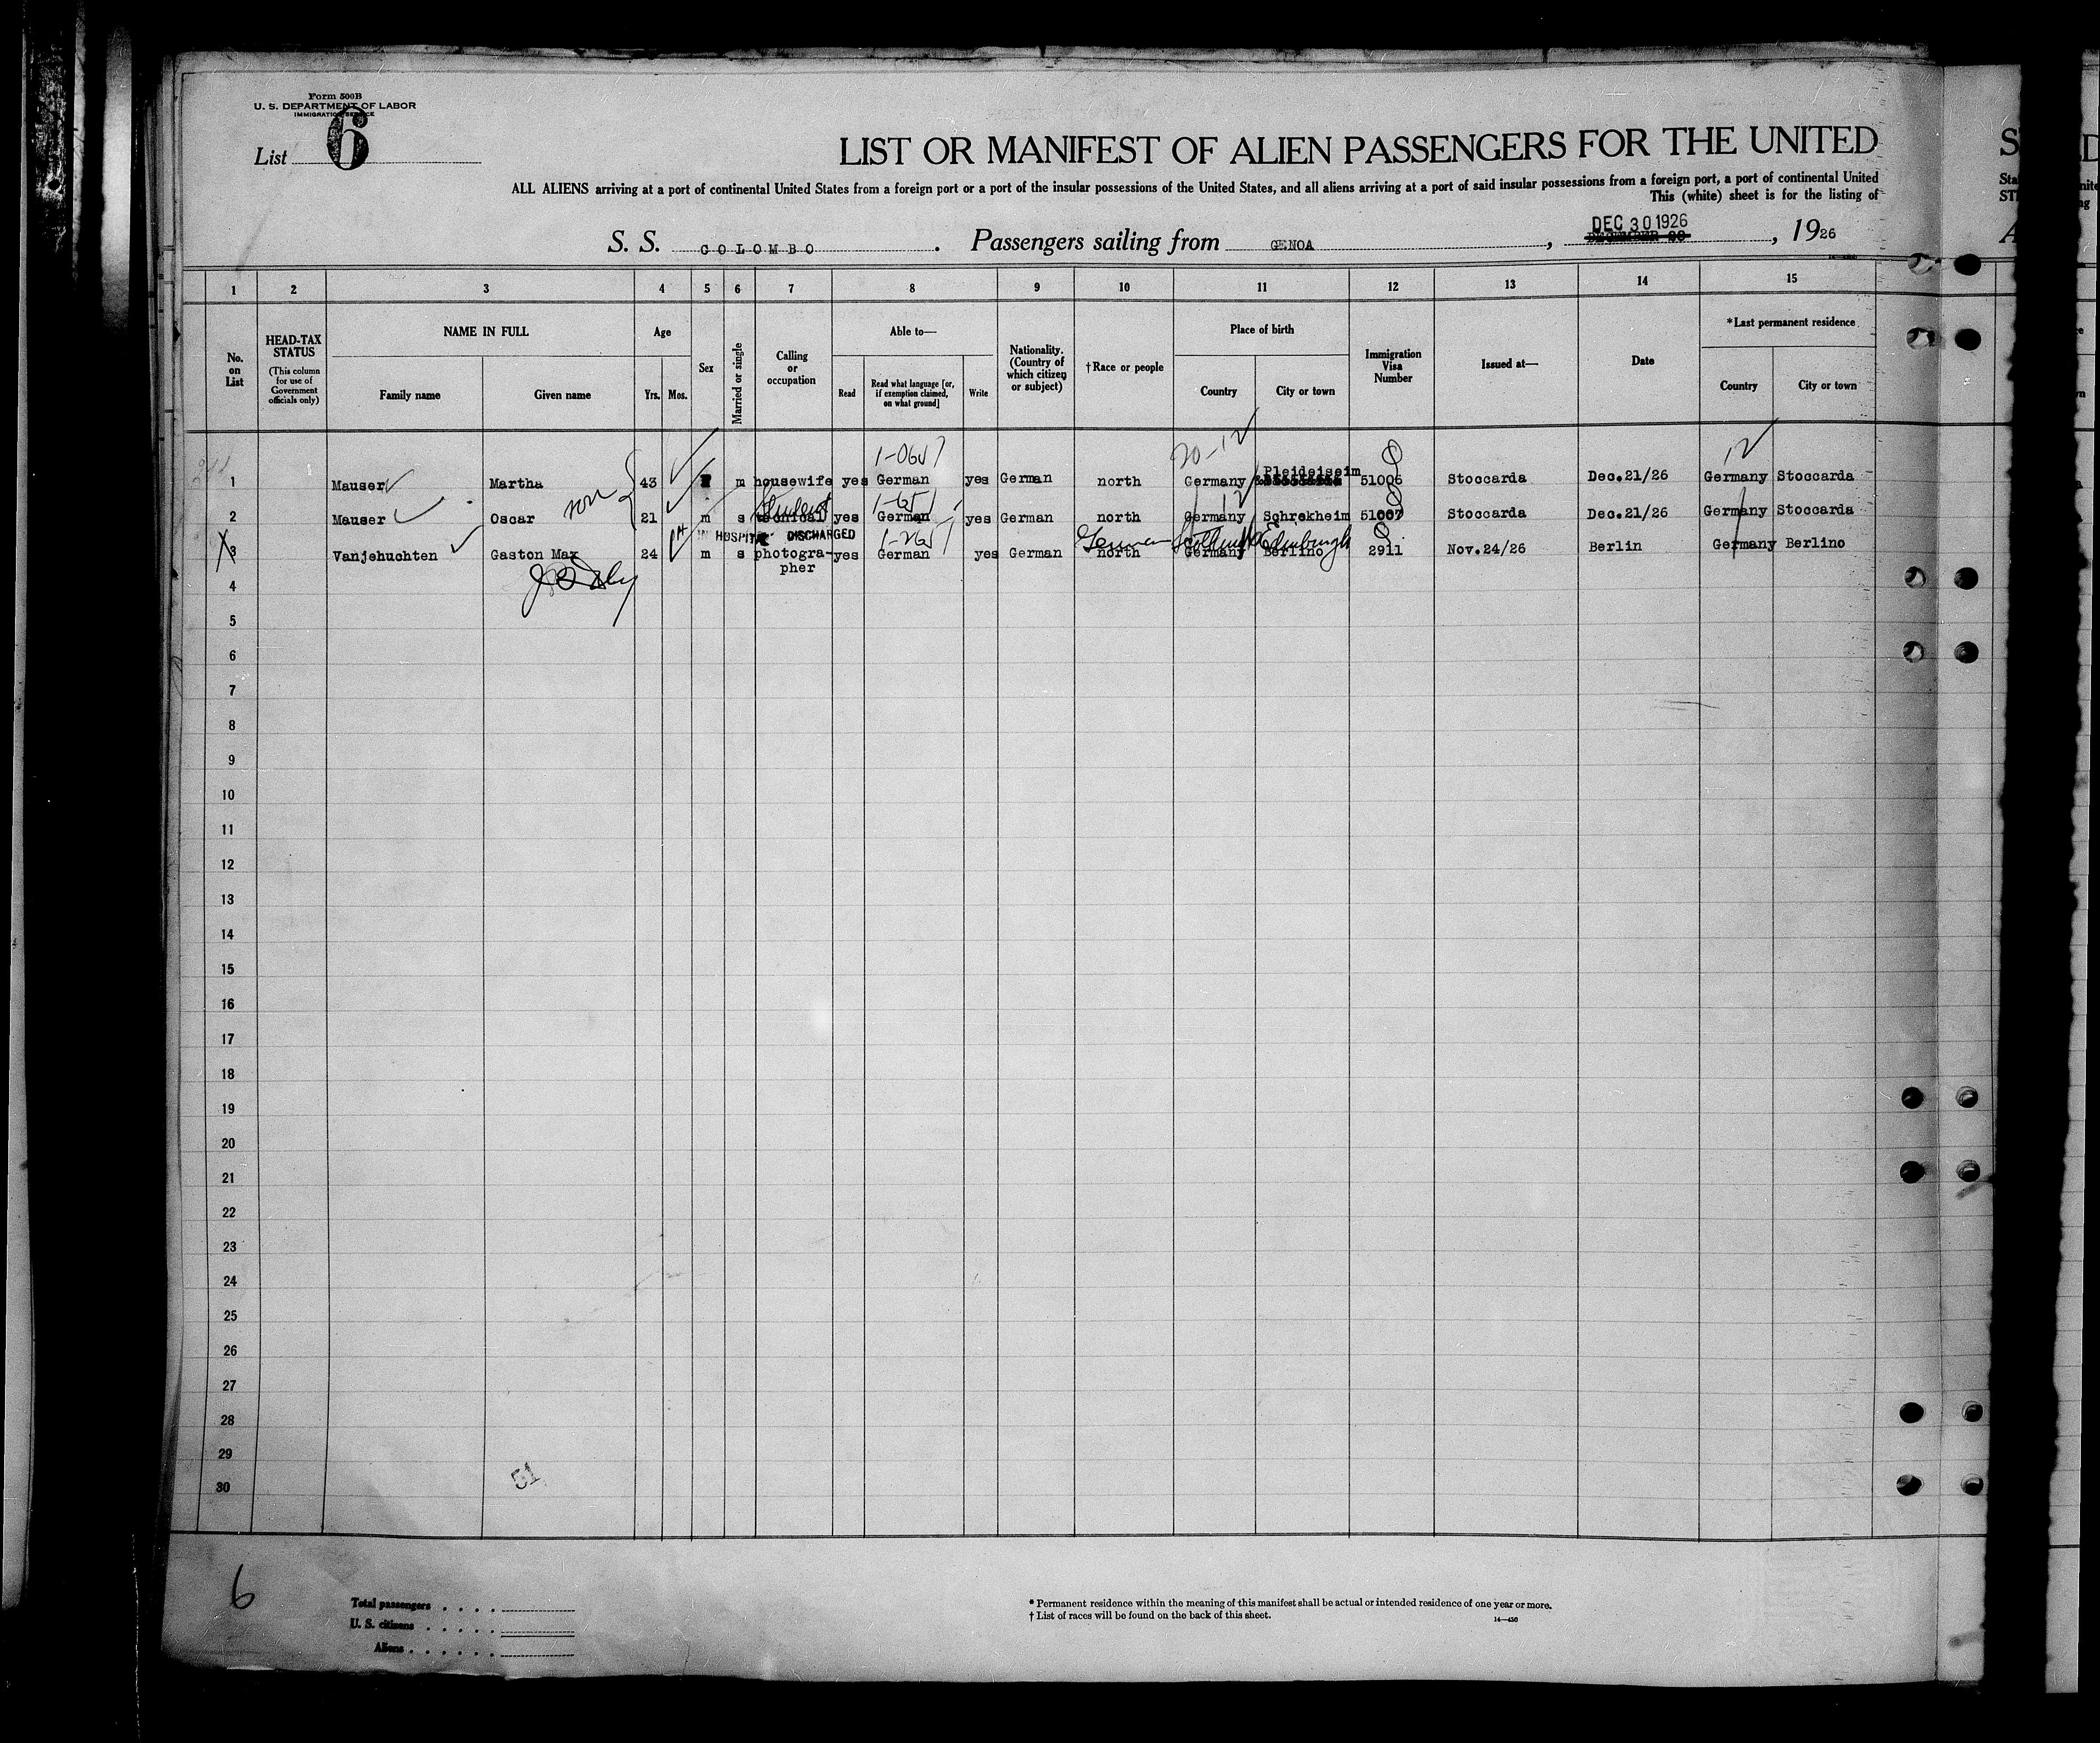 Form 500B
U. S. DEPARTMENT OF LABOR
IMMIGRATION SERVICE
List 6
LIST OR MANIFEST OF ALIEN PASSENGERS FOR THE UNITED
ALL ALIENS arriving at a port of continental United States from a foreign port or a port of the insular possessions of the United States, and all aliens arriving at a port of said insular possessions from a foreign port, a port of continental United
This (white) sheet is for the listing of
S. S. COLOMBO. Passengers sailing from GENOA, DEC 30 1926, 1926
1 2 3 4 5 6 7 8 9 10 11 12 13 14 15
No. on List
HEAD-TAX STATUS (This column for use of Government officials only)
NAME IN FULL
Family name Given name
Age
Yrs. Mos.
Sex
Married or single
Calling or occupation
Able to—
Read
Read what language [or, if exemption claimed, on what ground]
Write
Nationality. (Country of which citizen or subject)
†Race or people
Place of birth
Country City or town
Immigration Visa Number
Issued at—
Date
*Last permanent residence
Country City or town
20-12 12
1 Mauser Martha 43 m housewife yes German yes German north Germany Pleideiseim 51006 Stoccarda Dec.21/26 Germany Stoccarda
son
Student
2 Mauser Oscar 21 m s technical yes German yes German north Germany Schrekheim 51007 Stoccarda Dec.21/26 Germany Stoccarda
IN HOSPITAL DISCHARGED
German Edinburgh
3 Vanjehuchten Gaston Max 24 m s photographer yes German yes German north Germany Berlino 2911 Nov.24/26 Berlin Germany Berlino
4
5
6
7
8
9
10
11
12
13
14
15
16
17
18
19
20
21
22
23
24
25
26
27
28
29
30
51
6
Total passengers
U. S. citizens
Aliens
* Permanent residence within the meaning of this manifest shall be actual or intended residence of one year or more.
† List of races will be found on the back of this sheet.
14—430